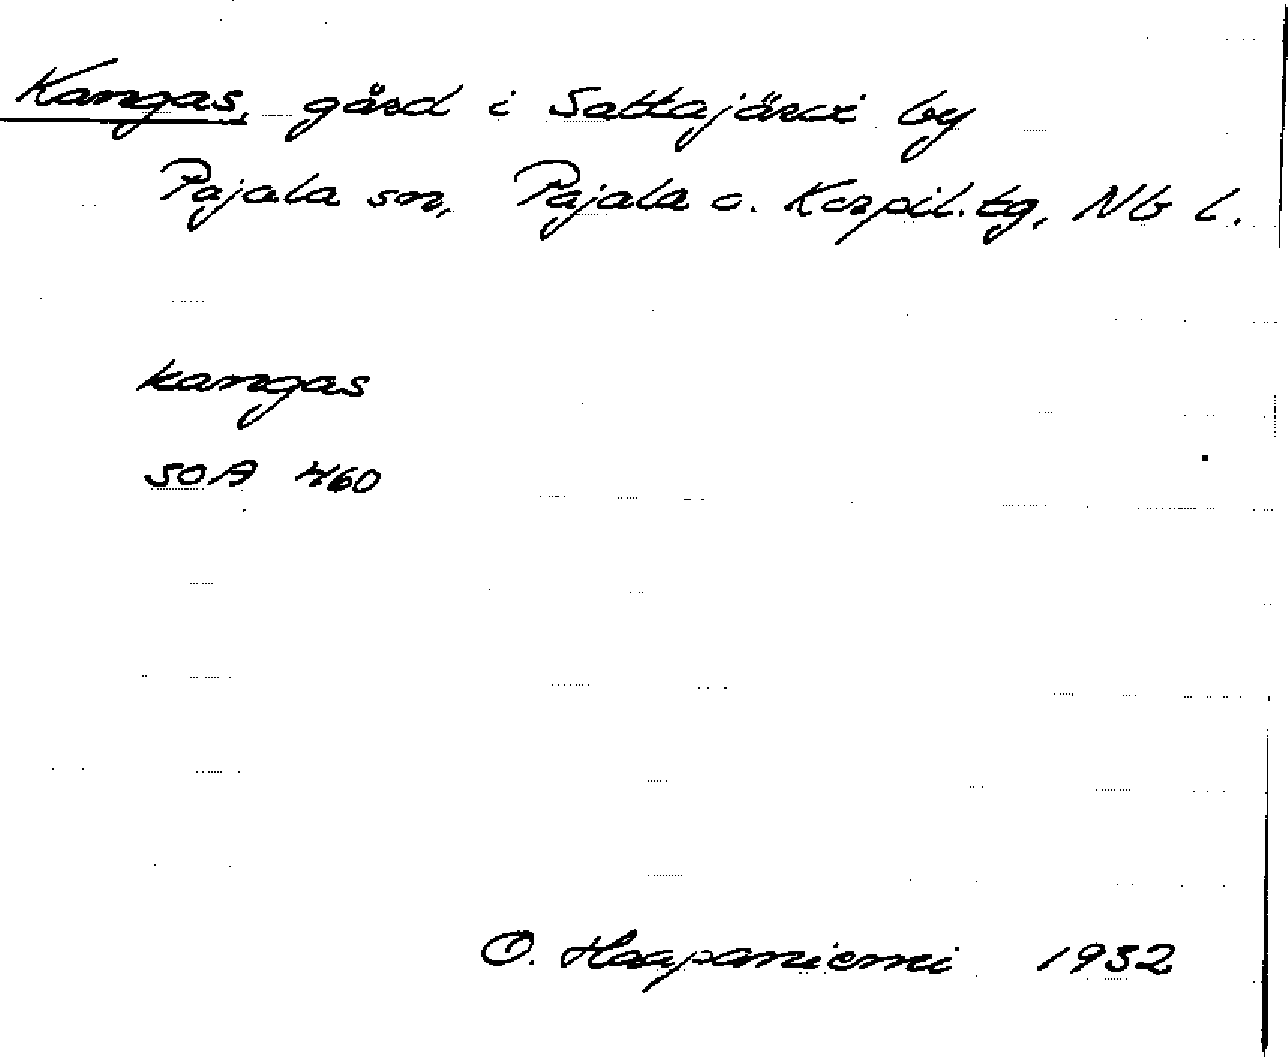 Kangas, gård i Sattajärvi by
Pajala sn, Pajala o. Korpil. tg, Nb l.
kangas
SOA 460
O. Haapaniemi 1932